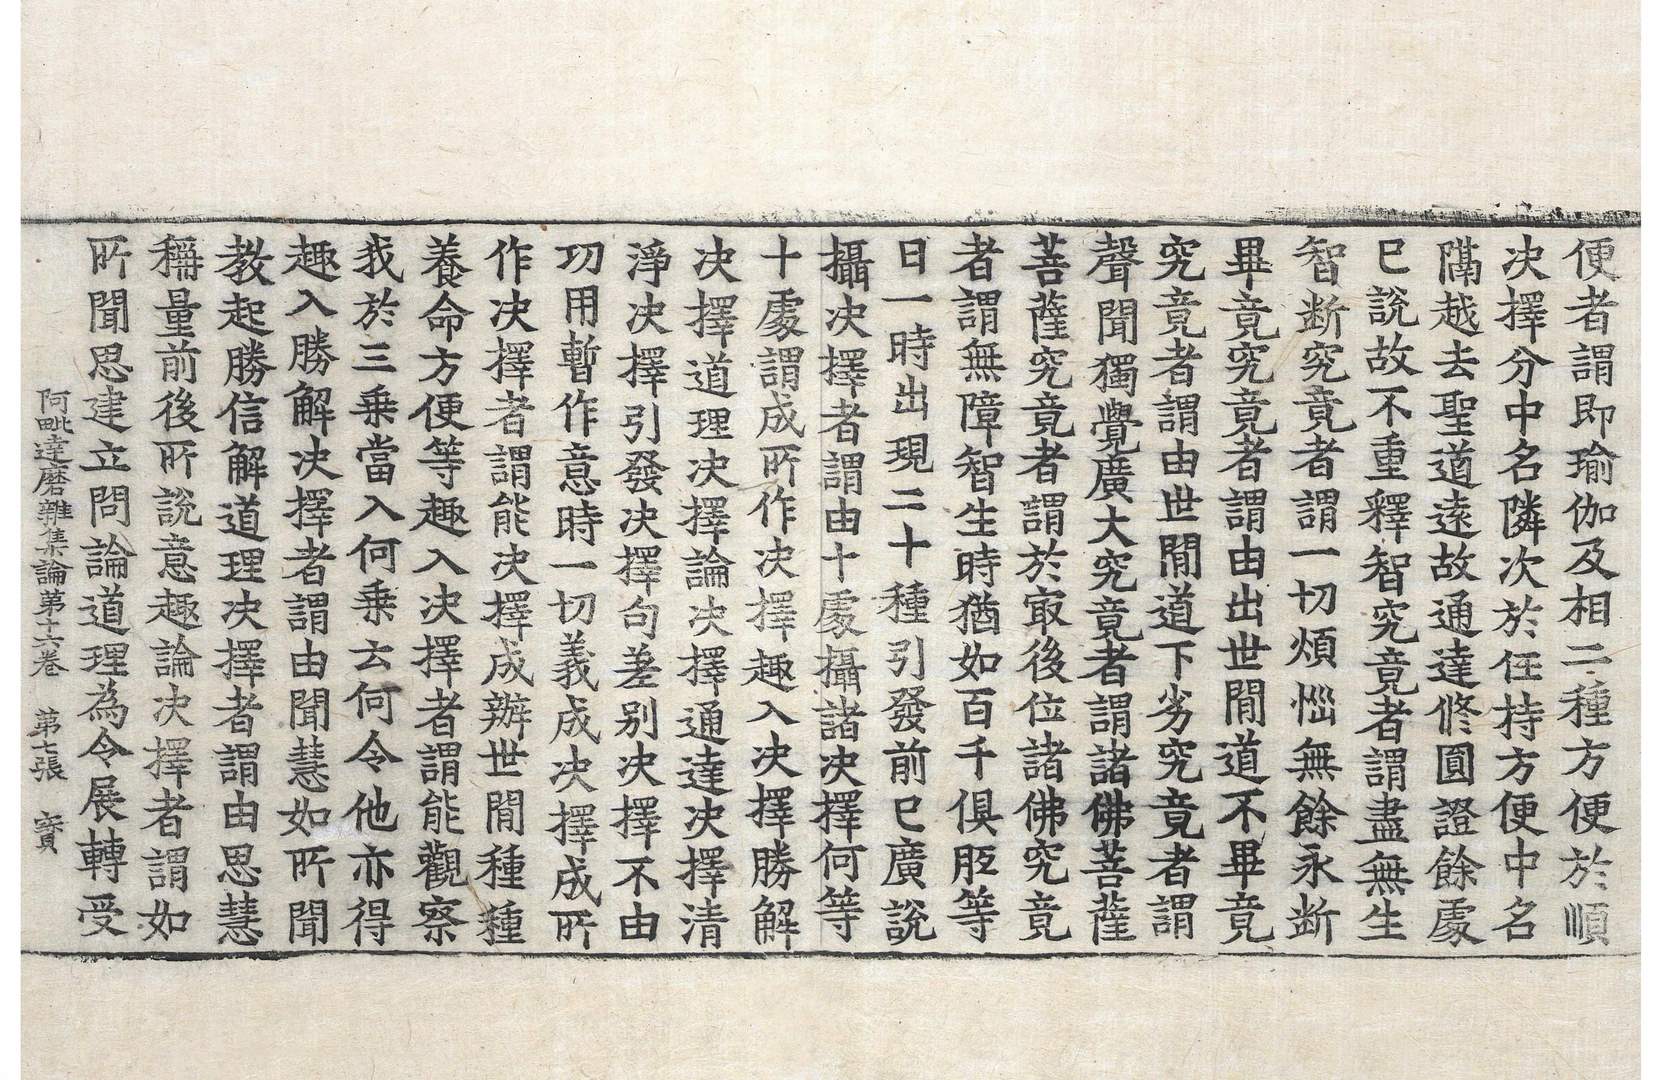 便者謂即瑜伽及相二種方便於順
决擇分中名隣次於任持方便中名
隔越去聖道遠故通達修圓證餘處
已說故不重釋智究竟者謂盡無生
智断究竟者謂一切煩惱無餘永断
畢竟究竟者謂由出世閒道不畢竟
究竟者謂由世閒道下劣究竟者謂
聲聞獨覺廣大究竟者謂諸佛菩薩
菩薩究竟者謂於㝡後位諸佛究竟
者謂無障智生時猶如百千俱胝等
日一時出現二十種引發前已廣說
攝决擇者謂由十處攝諸决擇何等
十處謂成所作决擇趣入决擇勝解
决擇道理决擇論决擇通達决擇清
淨决擇引發决擇句差别决擇不由
功用暫作意時一切義成决擇成所
作决擇者謂能决擇成辦世閒種種
養命方便等趣入决擇者謂能觀察
我於三乗當入何乗云何令他亦得
趣入勝解决擇者謂由聞慧如所聞
教起勝信解道理决擇者謂由思慧
稱量前後所說意趣論决擇者謂如
所聞思建立問論道理為令展轉受
阿毗達磨雜集論第十六卷　第七張　寳